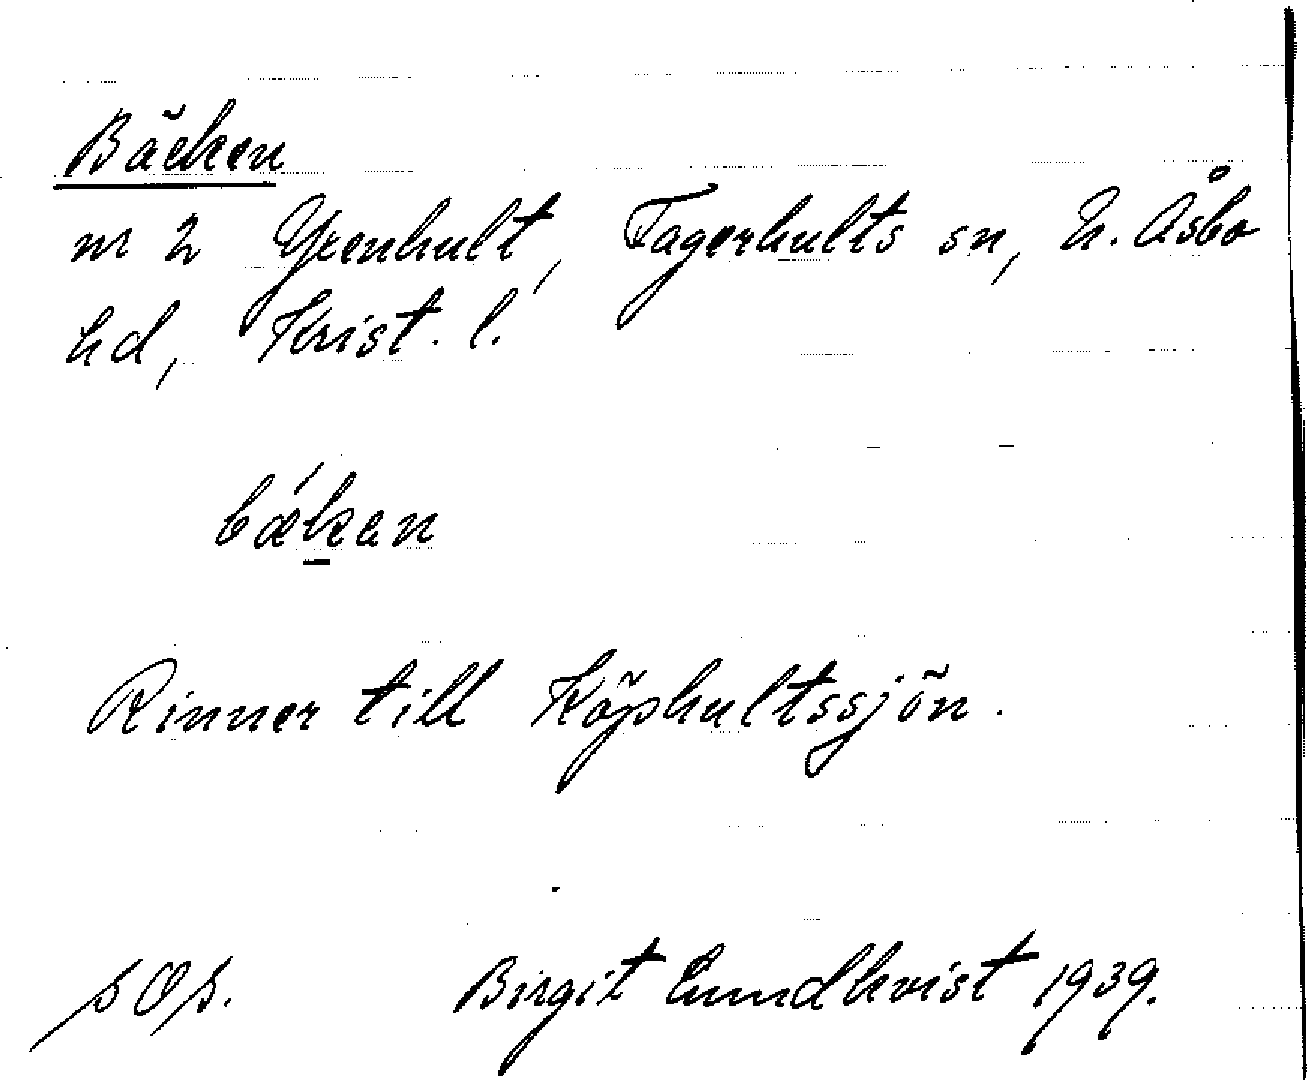 Bäcken
nr 2 Yxenhult, Fagerhults sn, N. Åsbo
hd, Krist. l.
bǽkan
Rinner till Köphultssjön.
sOs. Birgit Lundkvist 1939.